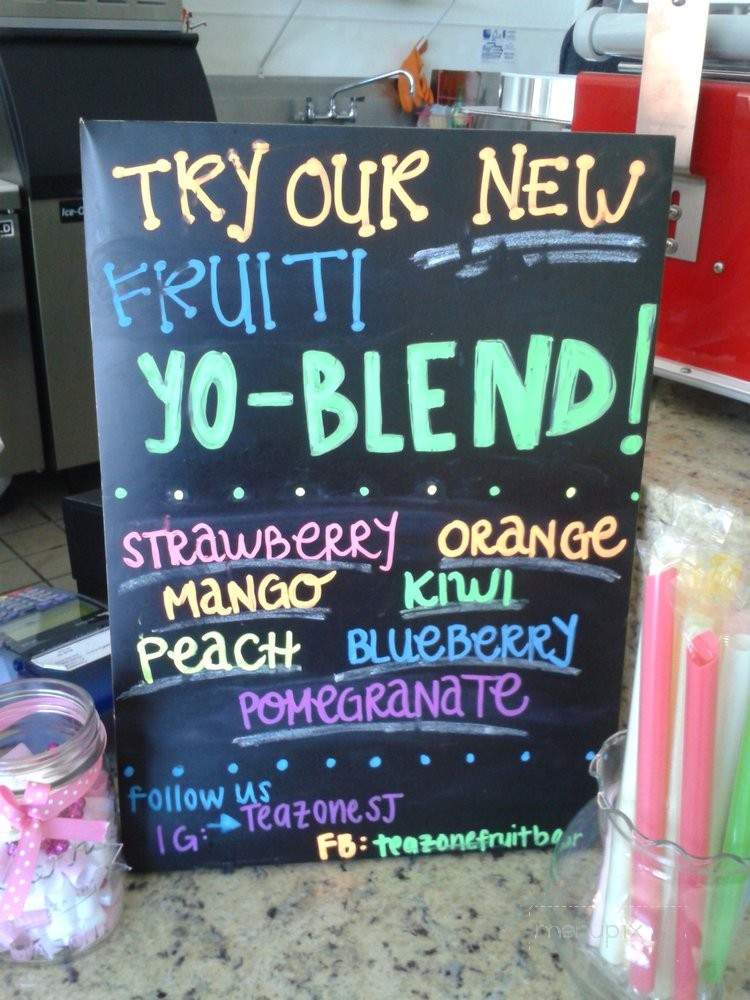 TRY OUR NEW
FRUITI
YO-BLEND!
STRAWBERRY ORANGE
MANGO KIWI
PEACH BLUEBERRY
POMEGRANATE
Follow us
IG: → TeazoneSJ
FB: teazonefruitbar
Ice-O
menupix